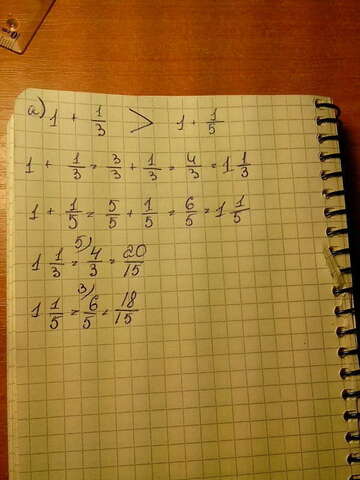 а) 1 + 1/3 > 1 + 1/5
1 + 1/3 = 3/3 + 1/3 = 4/3 = 1 1/3
1 + 1/5 = 5/5 + 1/5 = 6/5 = 1 1/5
1 1/3 = 5) 4/3 = 20/15
1 1/5 = 3) 6/5 = 18/15